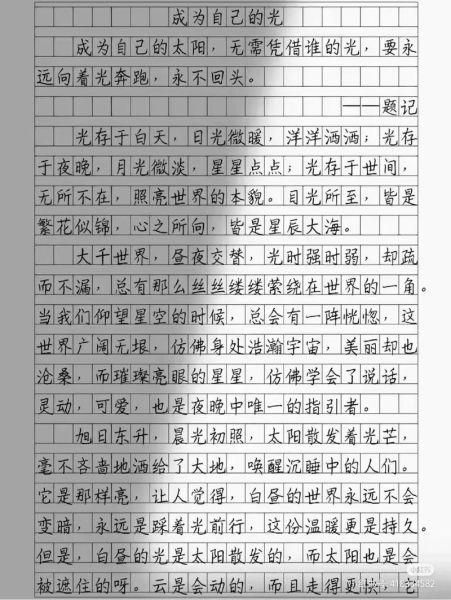 成为自己的光
成为自己的太阳，无需凭借谁的光，要永
远向着光奔跑，永不回头。
——题记
光存于白天，日光微暖，洋洋洒洒；光存
于夜晚，月光微淡，星星点点；光存于世间，
无所不在，照亮世界的本貌。目光所至，皆是
繁花似锦，心之所向，皆是星辰大海。
大千世界，昼夜交替，光时强时弱，却疏
而不漏，总有那么丝丝缕缕萦绕在世界的一角。
当我们仰望星空的时候，总会有一阵恍惚，这
世界广阔无垠，仿佛身处浩瀚宇宙，美丽却也
沧桑，而璀璨亮眼的星星，仿佛学会了说话，
灵动，可爱，也是夜晚中唯一的指引者。
旭日东升，晨光初照，太阳散发着光芒，
毫不吝啬地洒给了大地，唤醒沉睡中的人们。
它是那样亮，让人觉得，白昼的世界永远不会
变暗，永远是踩着光前行，这份温暖更是持久。
但是，白昼的光是太阳散发的，而太阳也是会
被遮住的呀。云是会动的，而且走得更快，它
小红书